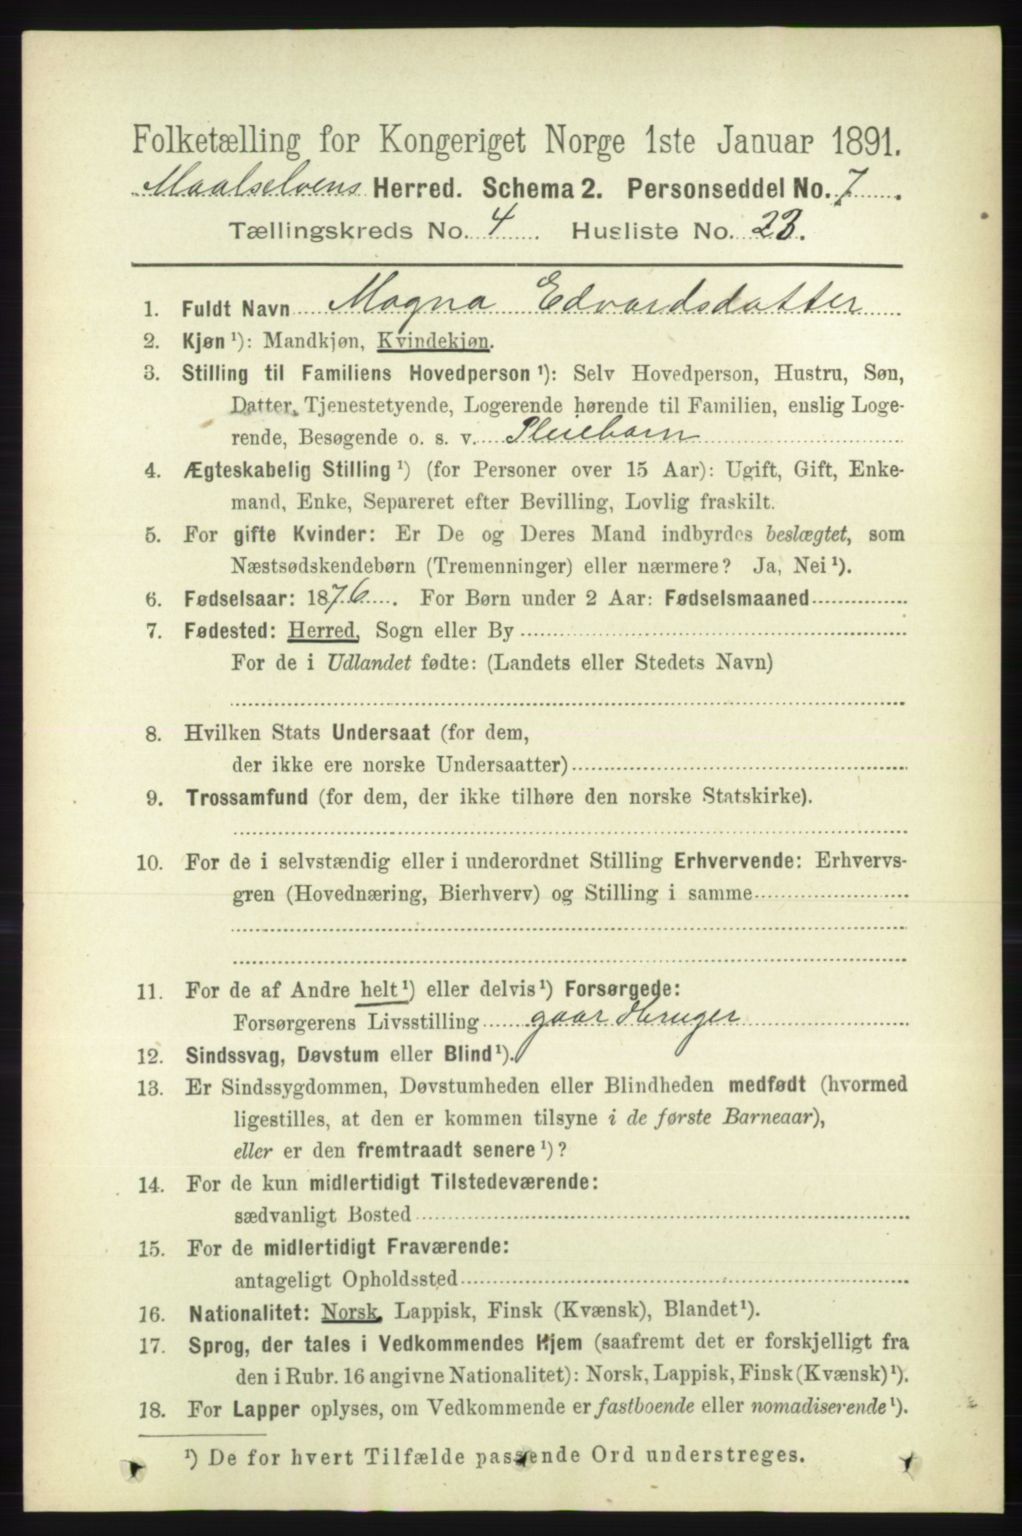 Folketælling for Kongeriget Norge 1ste Januar 1891.
Maalselvens Herred. Schema 2. Personseddel No. 7.
Tællingskreds No. 4 Husliste No. 23.
1. Fuldt Navn Magna Edvardsdatter
2. Kjøn ¹): Mandkjøn, Kvindekjøn.
3. Stilling til Familiens Hovedperson ¹): Selv Hovedperson, Hustru, Søn,
Datter, Tjenestetyende, Logerende hørende til Familien, enslig Loge-
rende, Besøgende o. s. v. Pleiebarn
4. Ægteskabelig Stilling ¹) (for Personer over 15 Aar): Ugift, Gift, Enke-
mand, Enke, Separeret efter Bevilling, Lovlig fraskilt.
5. For gifte Kvinder: Er De og Deres Mand indbyrdes beslægtet, som
Næstsødskendebørn (Tremenninger) eller nærmere? Ja, Nei ¹).
6. Fødselsaar: 1876. For Børn under 2 Aar: Fødselsmaaned
7. Fødested: Herred, Sogn eller By
For de i Udlandet fødte: (Landets eller Stedets Navn)
8. Hvilken Stats Undersaat (for dem,
der ikke ere norske Undersaatter)
9. Trossamfund (for dem, der ikke tilhøre den norske Statskirke).
10. For de i selvstændig eller i underordnet Stilling Erhvervende: Erhvervs-
gren (Hovednæring, Bierhverv) og Stilling i samme
11. For de af Andre helt ¹) eller delvis ¹) Forsørgede:
Forsørgerens Livsstilling gaardbruger
12. Sindssvag, Døvstum eller Blind ¹).
13. Er Sindssygdommen, Døvstumheden eller Blindheden medfødt (hvormed
ligestilles, at den er kommen tilsyne i de første Barneaar),
eller er den fremtraadt senere ¹)?
14. For de kun midlertidigt Tilstedeværende:
sædvanligt Bosted
15. For de midlertidigt Fraværende:
antageligt Opholdssted
16. Nationalitet: Norsk, Lappisk, Finsk (Kvænsk), Blandet ¹).
17. Sprog, der tales i Vedkommendes Hjem (saafremt det er forskjelligt fra
den i Rubr. 16 angivne Nationalitet): Norsk, Lappisk, Finsk (Kvænsk) ¹).
18. For Lapper oplyses, om Vedkommende er fastboende eller nomadiserende ¹).
¹) De for hvert Tilfælde passende Ord understreges.